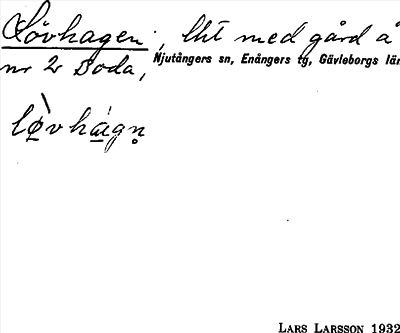 Lövhagen, lht med gård å
nr 2 Boda, Njutångers sn, Enångers tg, Gävleborgs län
Lars Larsson 1932